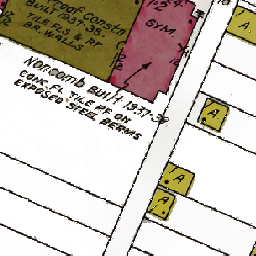 proof Constn
Built 1937-38
Tile Fls & Rf
Br. Walls
Gym.
Noncomb Built 1937-38
Conc. Fl. Tile Rf on
Exposed Steel Beams
A.
A
A
A